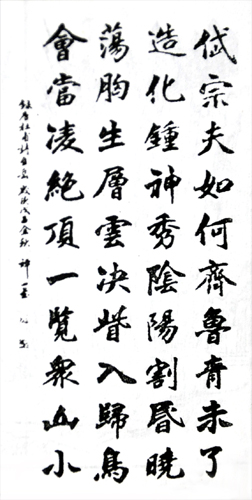 岱宗夫如何齊魯青未了
造化鍾神秀陰陽割昏曉
蕩胸生層雲决眥入歸鳥
會當凌絕頂一覽眾山小
錄唐杜甫詩